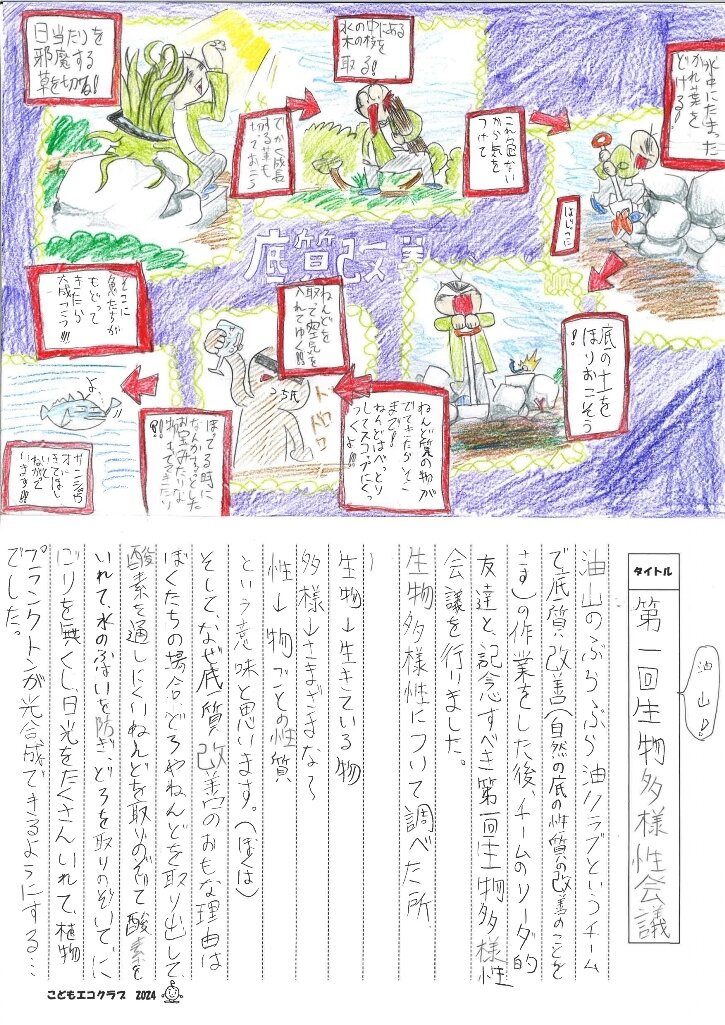 日当たりを
邪魔する
草を切る!
でかく成長
する葉も
切っておこう
水の中にある
木の枝を
取る!
これら危ない
から気を
つけて
水中にたまった
かれ葉を
どける!
はじっこに
底質改善
底の土を
ほりおこそう
!
ねんど質の物が
でてきたらそこ
まで!
ねんどはべっとり
してスコップにくっ
つくよ!!
ねんどを
取って空気を
入れてゆく!!
うち氏
ドロドロ
ほってる時に
なんかキラッとした
お宝みたいな
物もでてきたり
!?
もどって
きたら
大成こうっ!!!
よ、
オイ
きてほしい
ねがって
います!!!
タイトル
第一回生物多様性会議
油山D!
油山のぶらぶら油クラブというチーム
で、底質改善(自然の底の性質の改善のことを
さす)の作業をした後、チームのリーダ的
友達と、記念すべき第一回生物多様性
会議を行りました。
生物多様性について調べた所、
生物→生きている物
多様→さまざまな〜
性→物ごとの性質
という意味と思います。(ぼくは)
そして、なぜ底質改善のおもな理由は
ぼくたちの場合、どろやねんどを取り出して、
酸素を通しにくいねんどを取りのぞいて酸素を
いれて、水のふはいを防ぎ、どろを取りのぞいて、に
ごりを無くし、日光をたくさんいれて、植物
プランクトンが光合成できるようにする…
でした。
こどもエコクラブ 2024